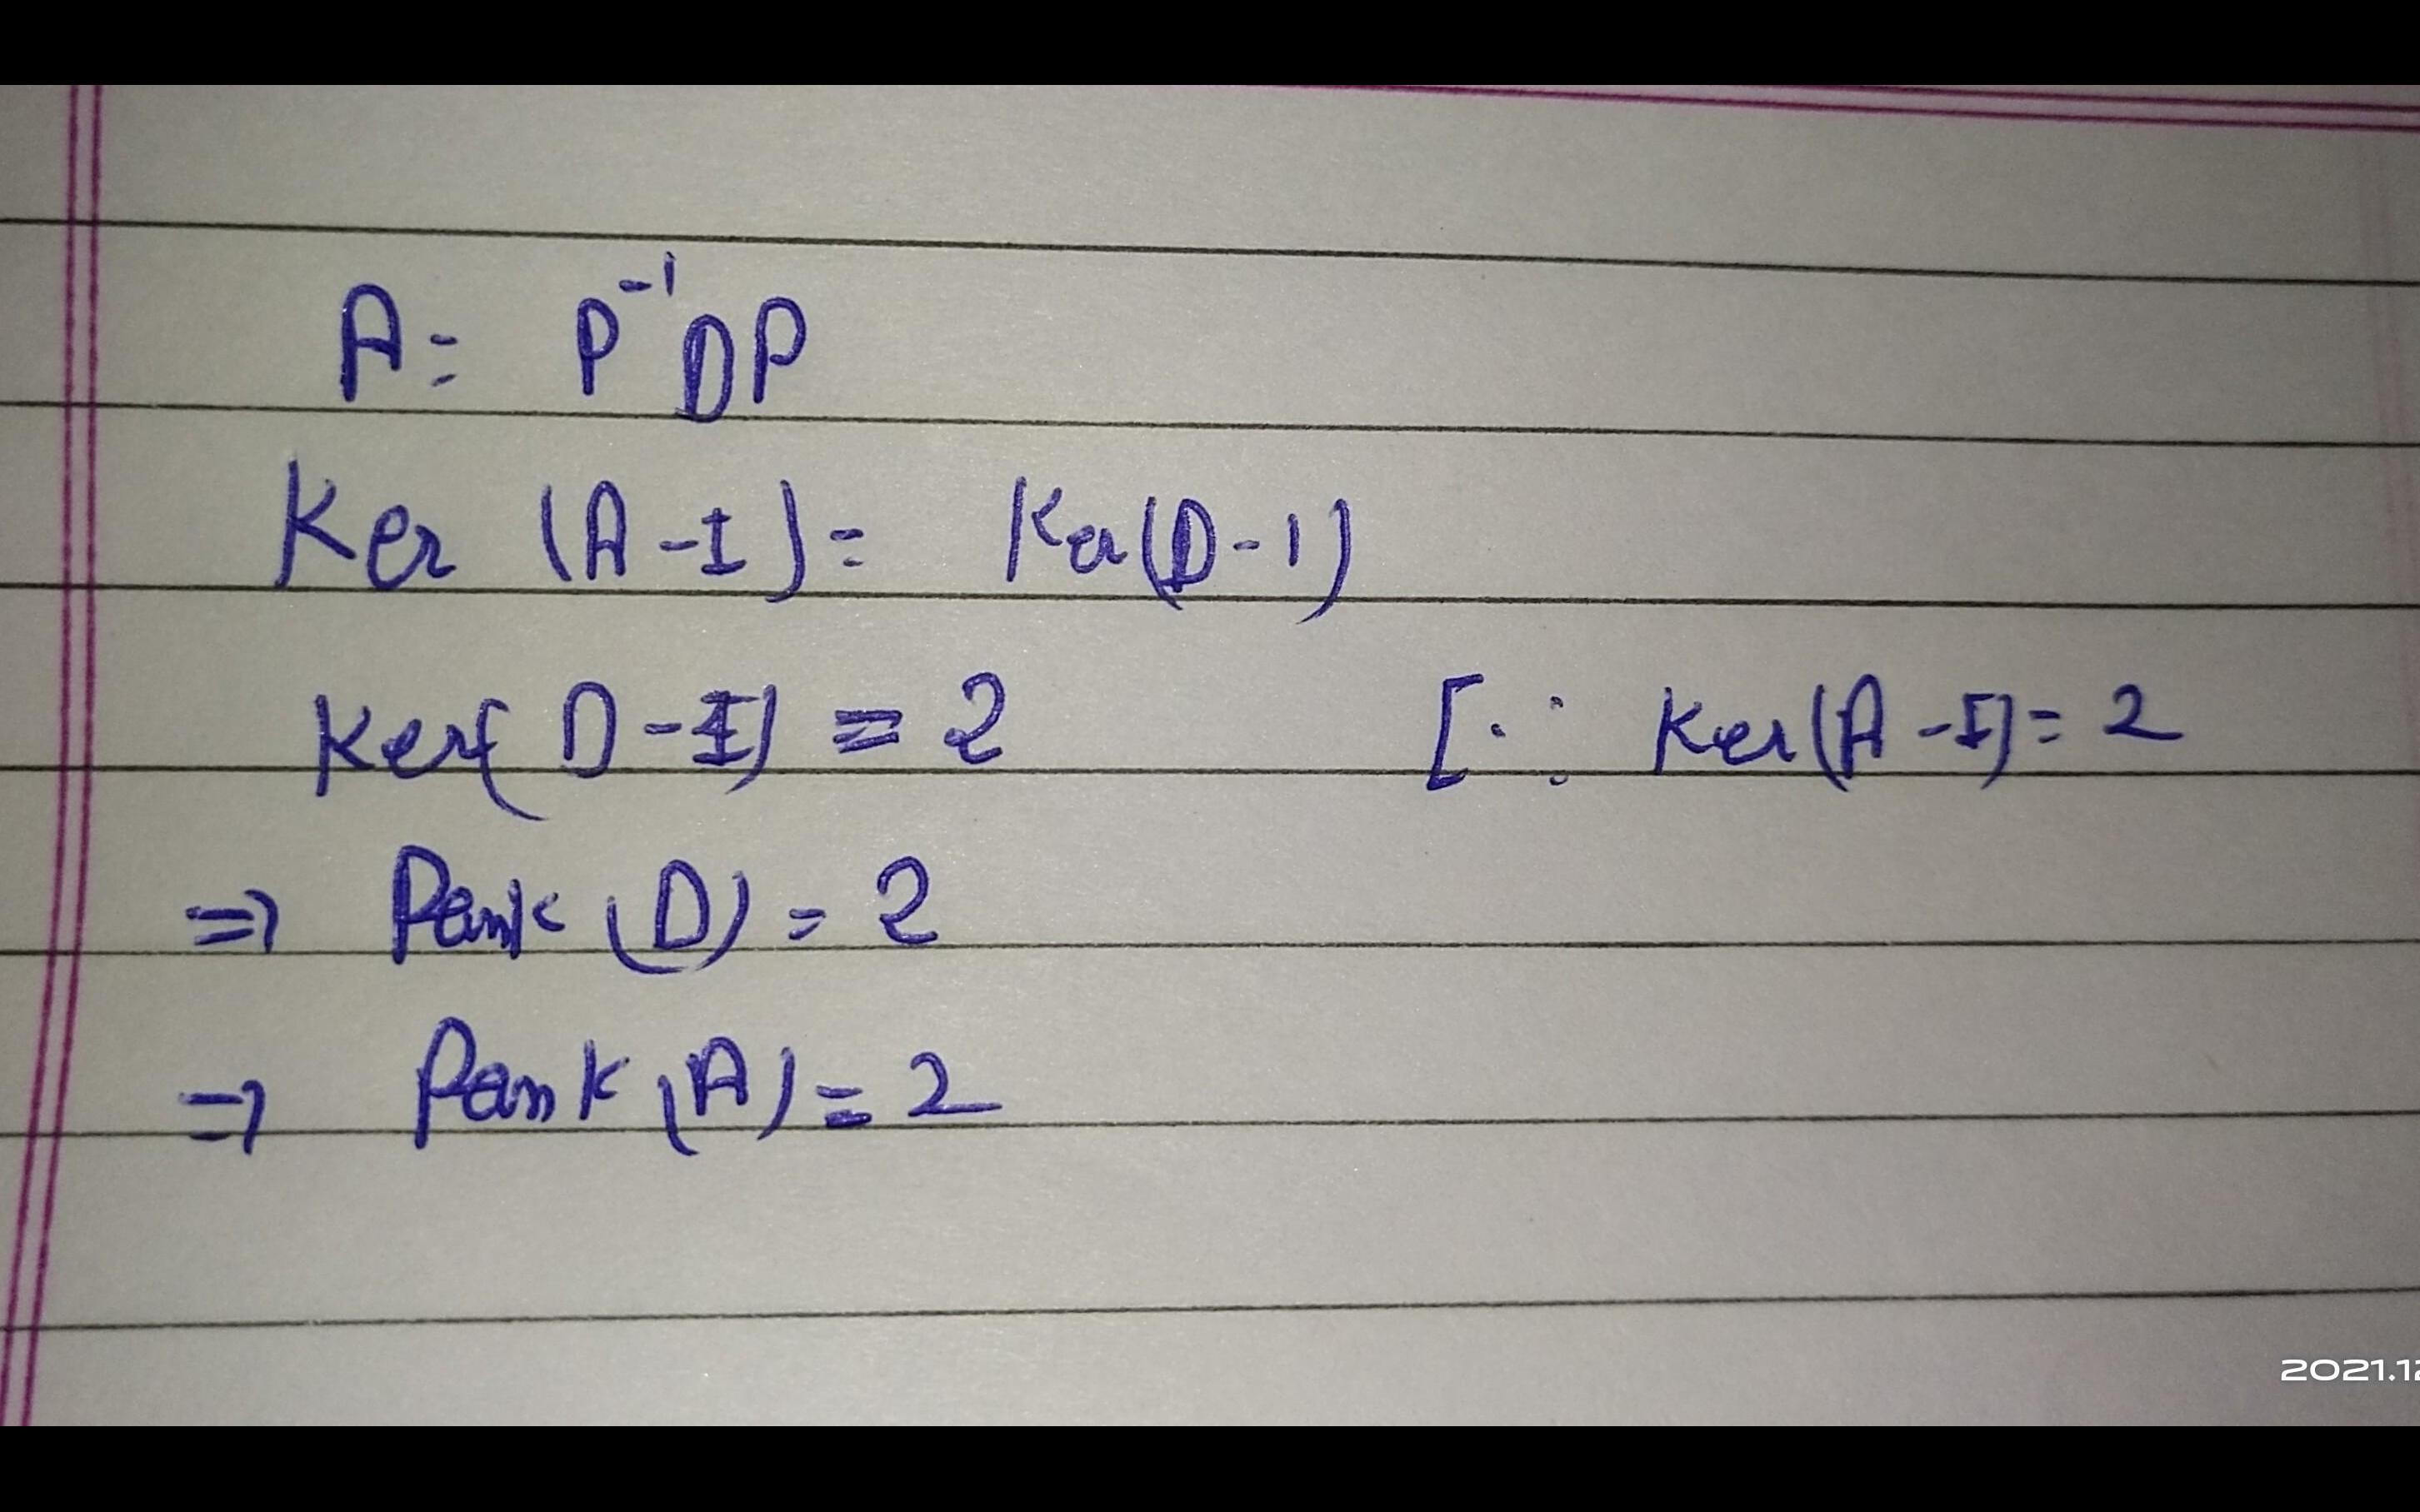 A = P⁻¹DP
Ker (A - I) = Ker(D - 1)
Ker( D - I) = 2 [∵ Ker(A - I) = 2
⇒ Rank (D) = 2
⇒ Rank (A) = 2
2021.12